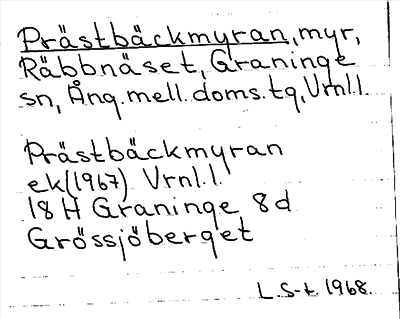 Prästbäckmyran, myr,
Räbbnäset, Graninge
sn, Ång. mell. doms. tg, Vrnl. l.
Prästbäckmyran
ek (1967) Vrnl. l.
18 H Graninge 8 d
Grössjöberget
L. S-t. 1968.